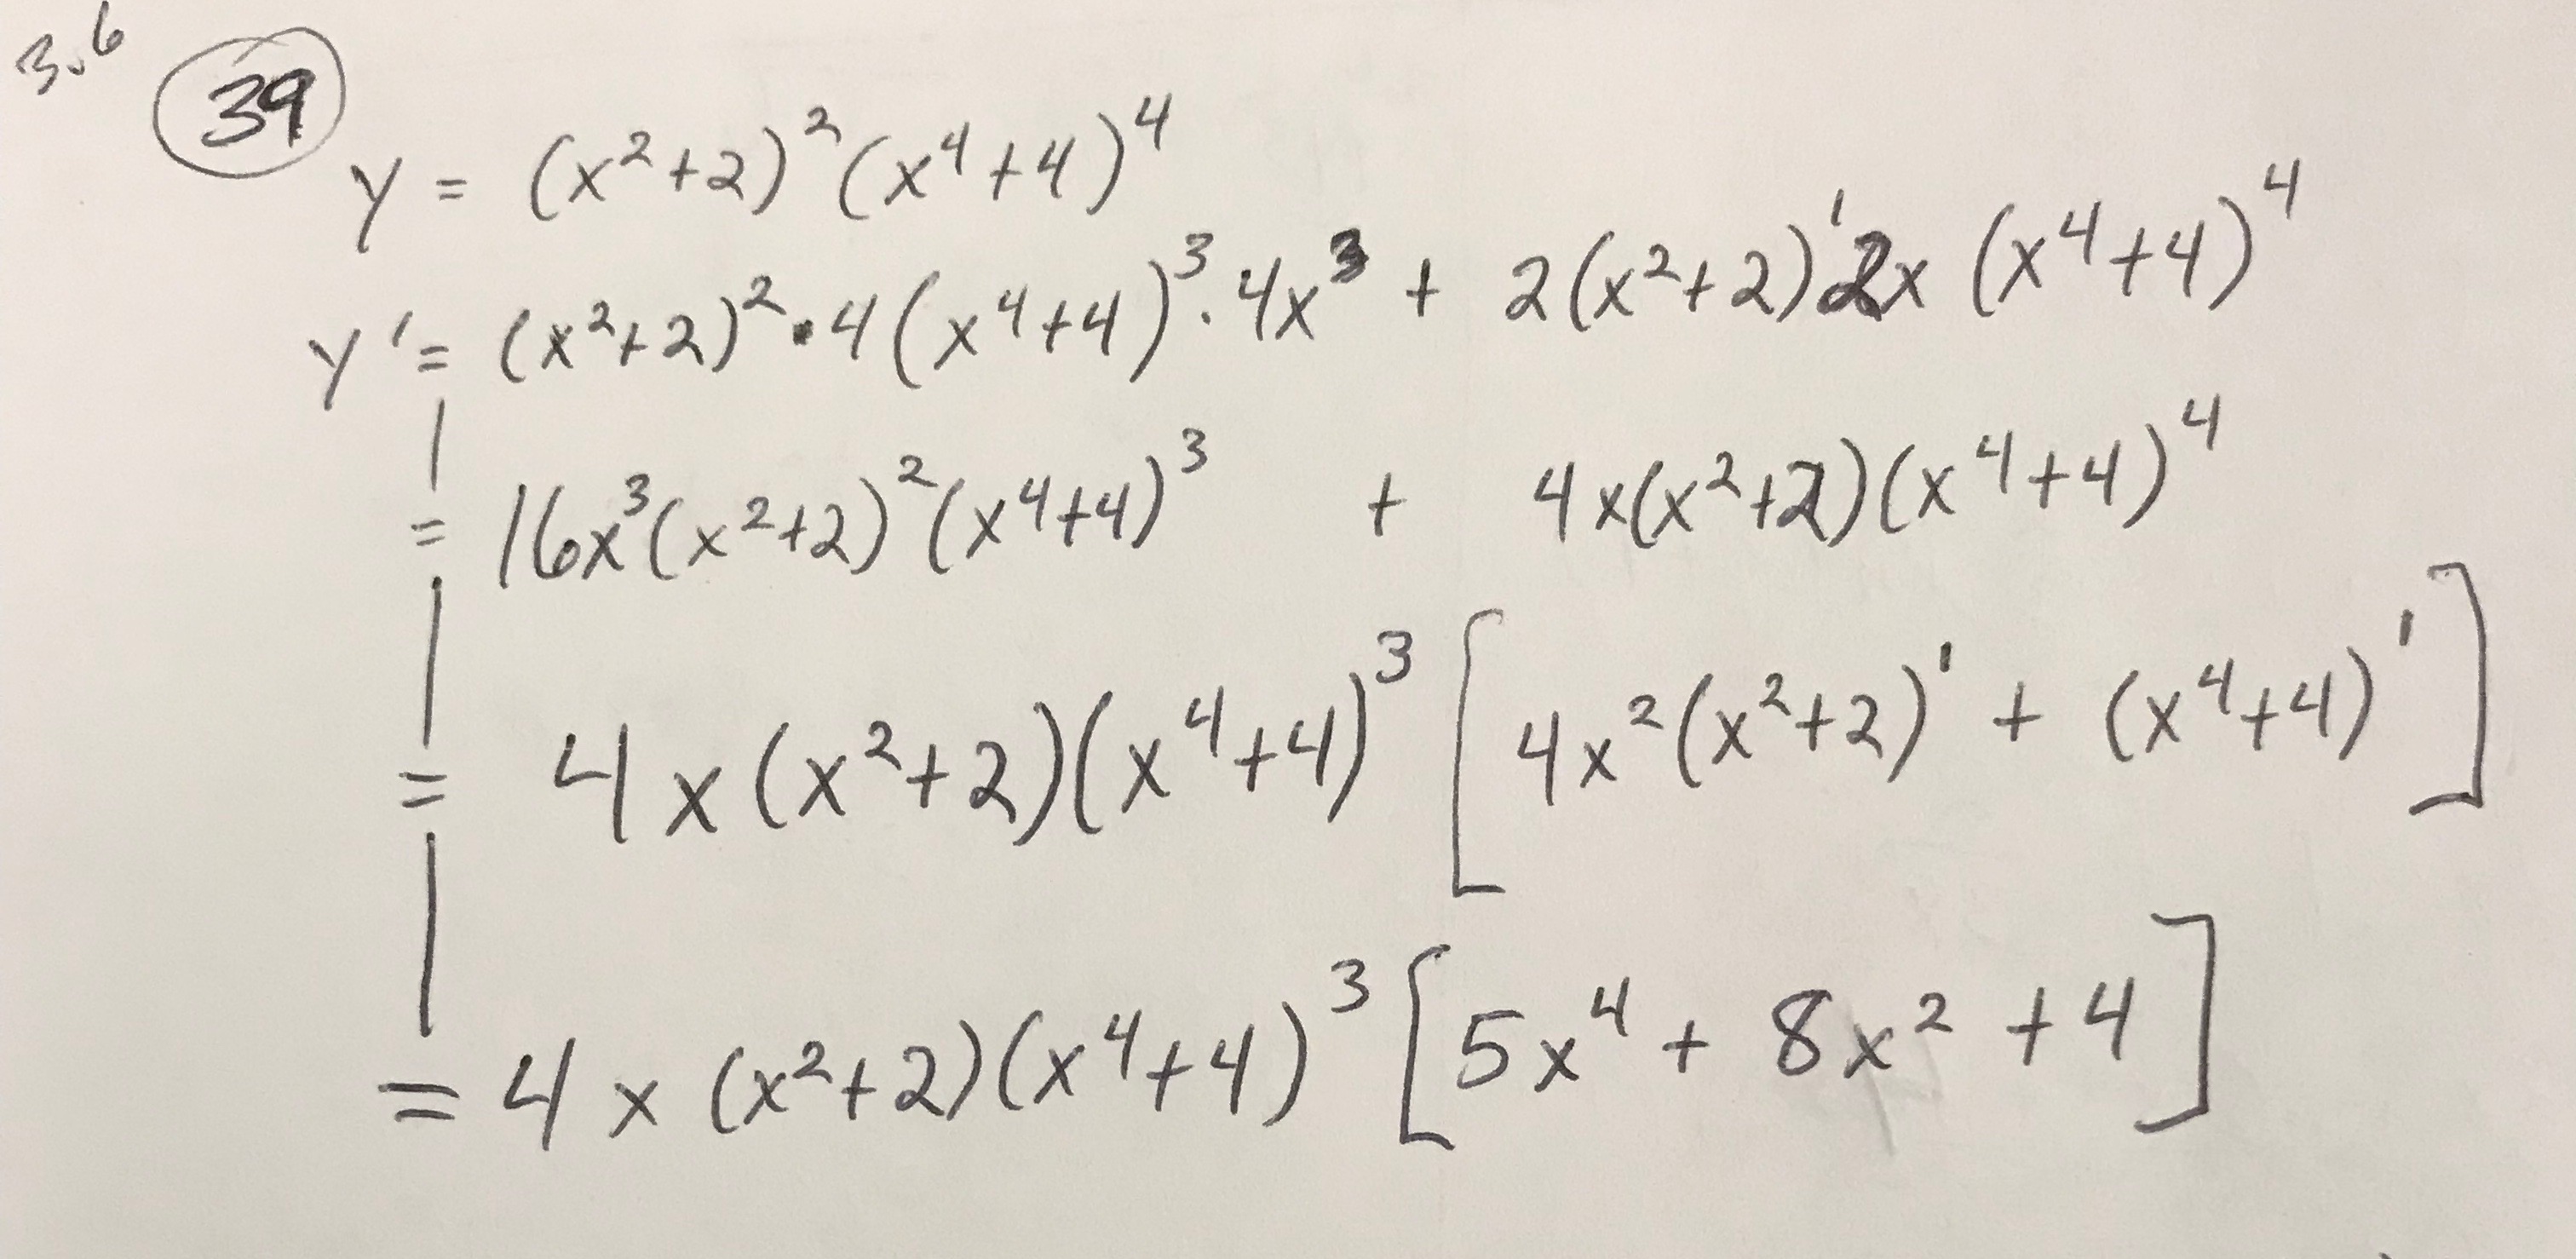 3.6 39
y = (x²+2)²(x⁴+4)⁴
y' = (x²+2)²·4(x⁴+4)³·4x³ + 2(x²+2)¹2x(x⁴+4)⁴
= 16x³(x²+2)²(x⁴+4)³ + 4x(x²+2)(x⁴+4)⁴
= 4x(x²+2)(x⁴+4)³[4x²(x²+2)¹ + (x⁴+4)¹]
= 4x(x²+2)(x⁴+4)³[5x⁴ + 8x² + 4]